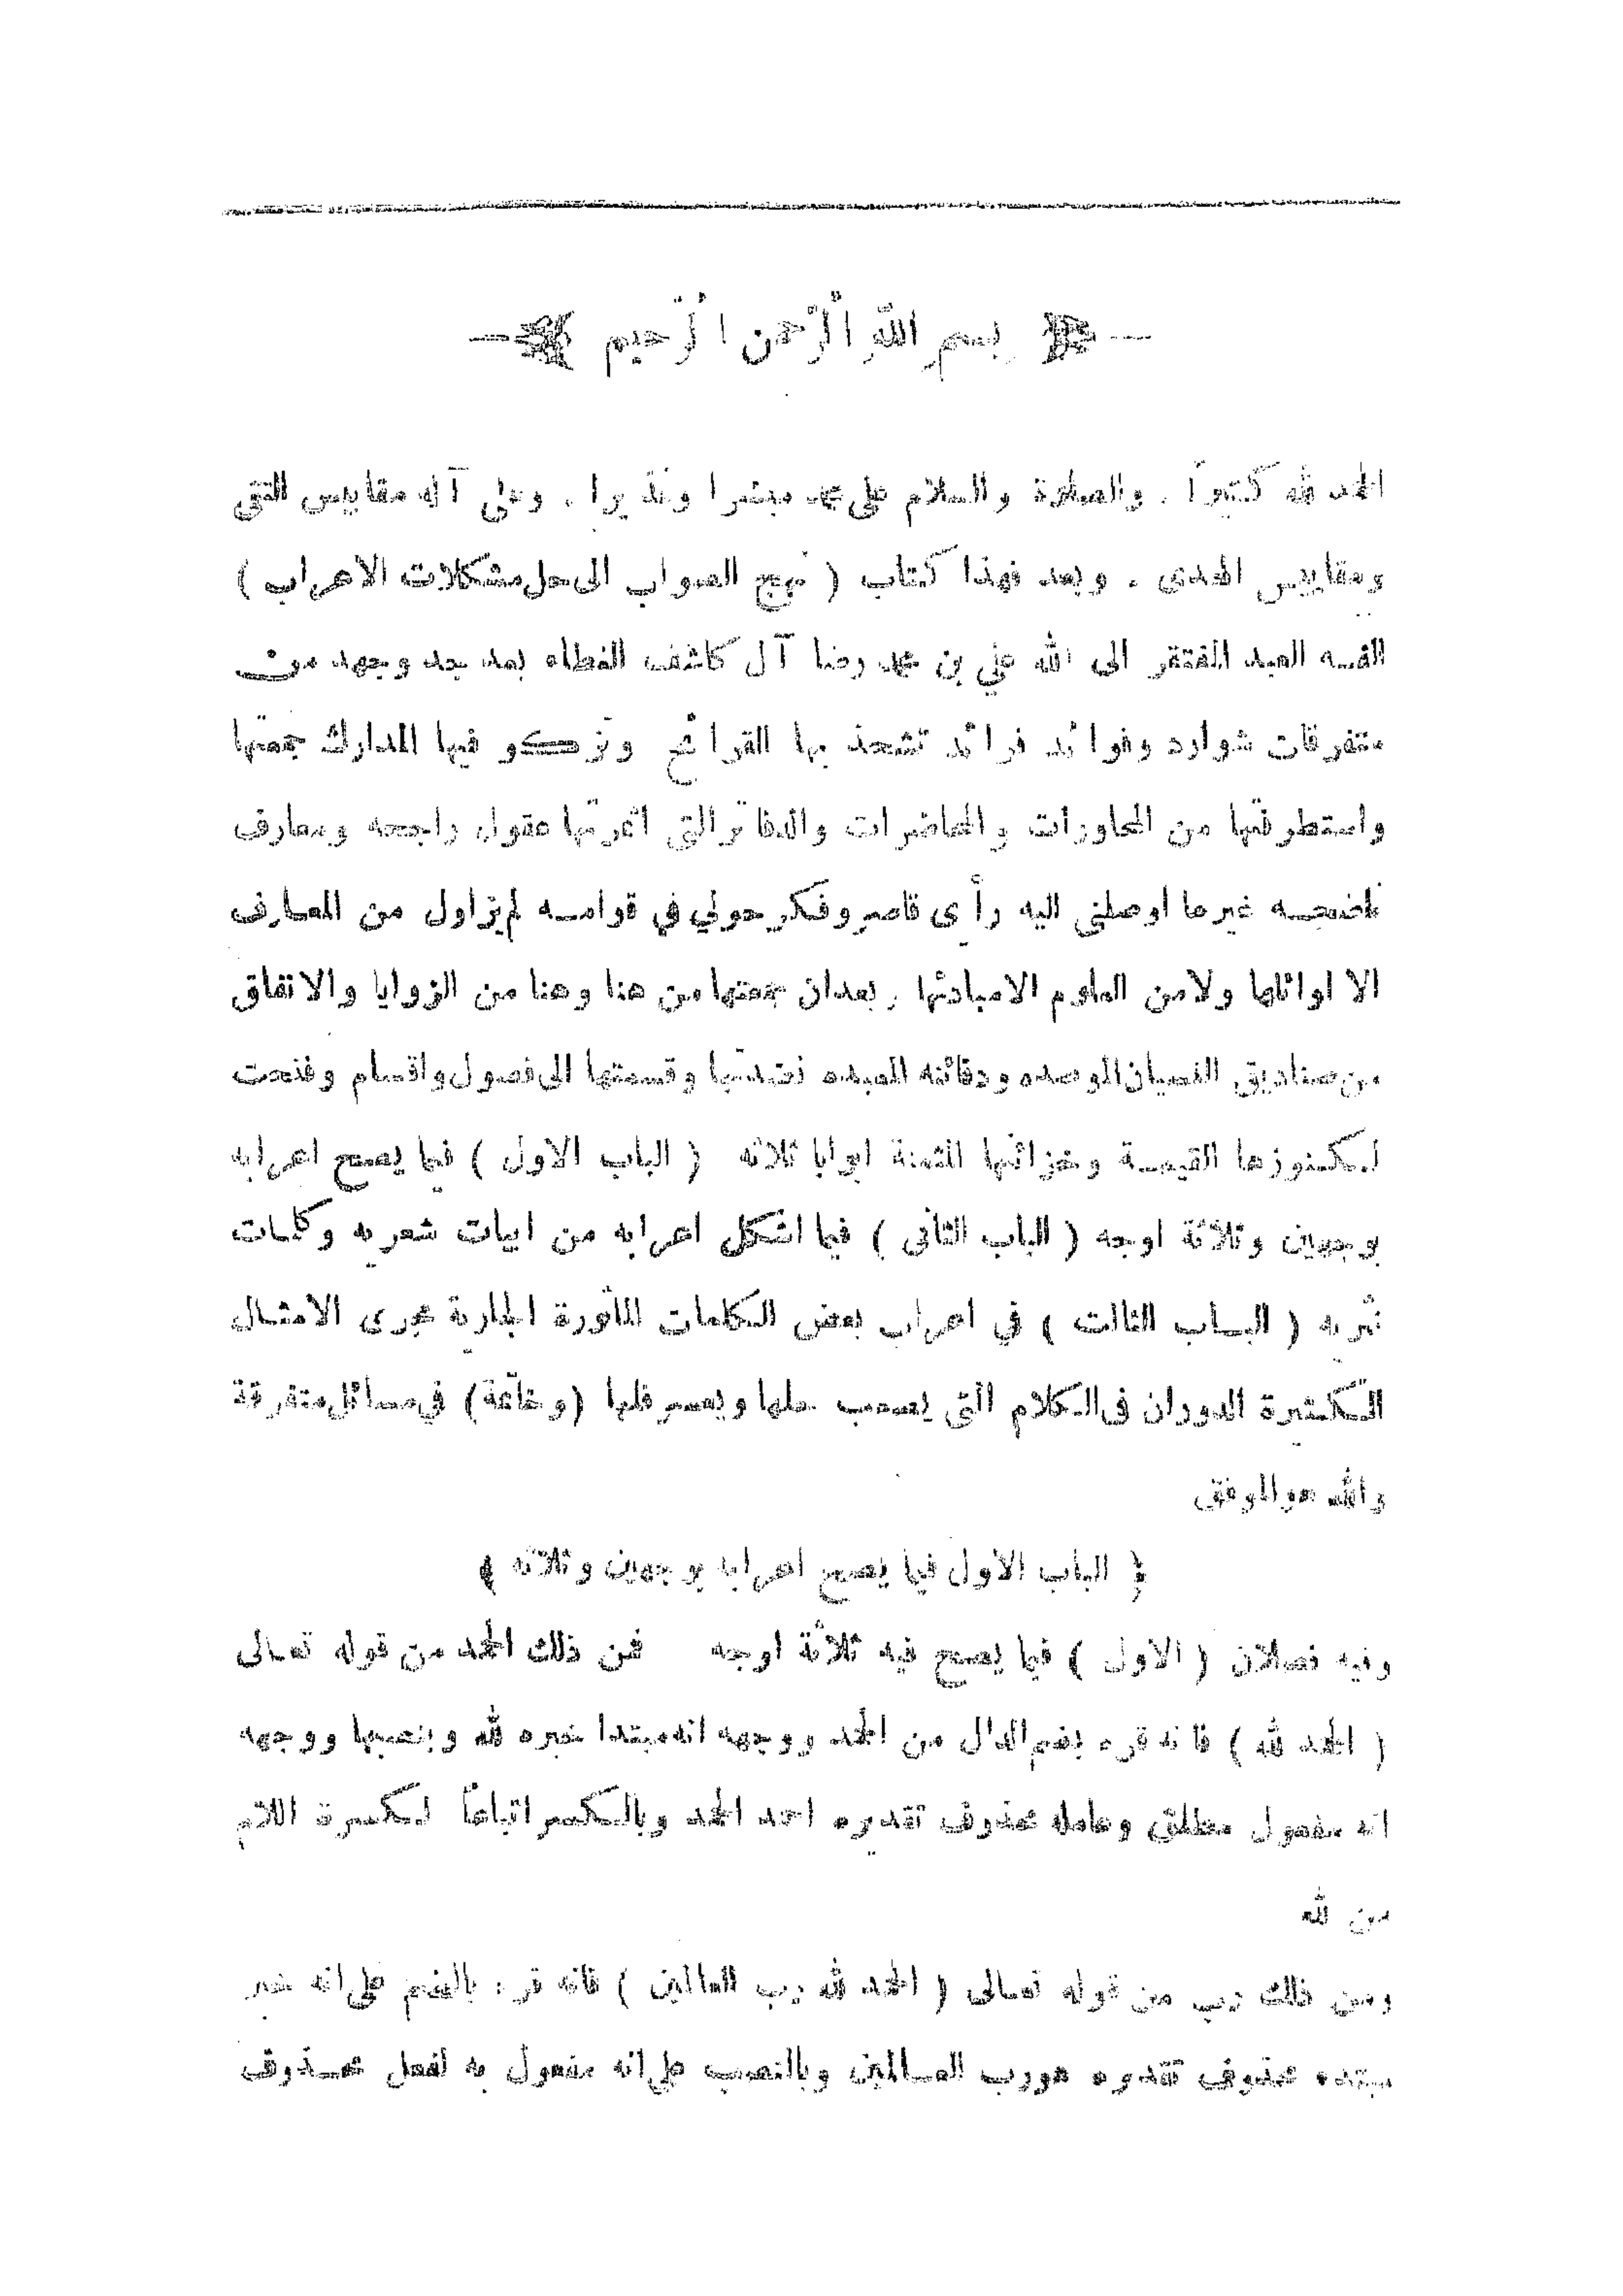 بسم الله الرحمن الرحيم
الحمد لله كثيراً . والصلاة والسلام على محمد مبشرا ونذيرا . وعلى آله مقاييس التقى
ومقاييس الهدى . وبعد فهذا كتاب ( نهج الصواب الى حل مشكلات الاعراب )
الفه العبد المفتقر الى الله علي بن محمد رضا آل كاشف الغطاء بعد جد وجهد من
متفرقات شوارد وفوائد فرائد تشحذ بها القرائح وتزكو فيها المدارك جمعتها
واستطرفتها من المحاورات والمحاضرات والدفاتر التي اثمرتها عقول راجحه ومعارف
ناضجه غير ما اوصلني اليه رأي قاصر وفكر حولي في قوامه لم يزاول من المعارف
الا اوائلها ولا من العلوم الا مبادئها . بعد ان جمعتها من هنا وهنا من الزوايا والاتفاق
من صناديق النسيان الموصده ودفائنه المبيده نضدتها وقسمتها الى فصول واقسام وفتحت
لكنوزها القيمة وخزائنها الثمينة ابوابا ثلاثه ( الباب الاول ) فيما يصح اعرابه
بوجهين وثلاثة اوجه ( الباب الثاني ) فيما اشكل اعرابه من ابيات شعريه وكلمات
نثريه ( الباب الثالث ) في اعراب بعض الكلمات المأثورة الجارية مجرى الامثال
الكثيرة الدوران في الكلام التي يصعب حلها ويعسر فلها (وخاتمة) في مسائل متفرقة
والله هو الموفق
﴿ الباب الاول فيما يصح اعرابه بوجهين وثلاثه ﴾
وفيه فصلان ( الاول ) فيما يصح فيه ثلاثة اوجه فمن ذلك الحمد من قوله تعالى
( الحمد لله ) فانه قرء بضم الدال من الحمد ووجهه انه مبتدا خبره لله وبنصبها ووجهه
انه مفعول مطلق وعامله محذوف تقديره احمد الحمد وبالكسر اتباعاً لكسرة اللام
من لله
ومن ذلك رب من قوله تعالى ( الحمد لله رب العالمين ) فانه قرء بالضم على انه خبر
مبتدء محذوف تقديره هو رب العالمين وبالنصب على انه مفعول به لفعل محذوف